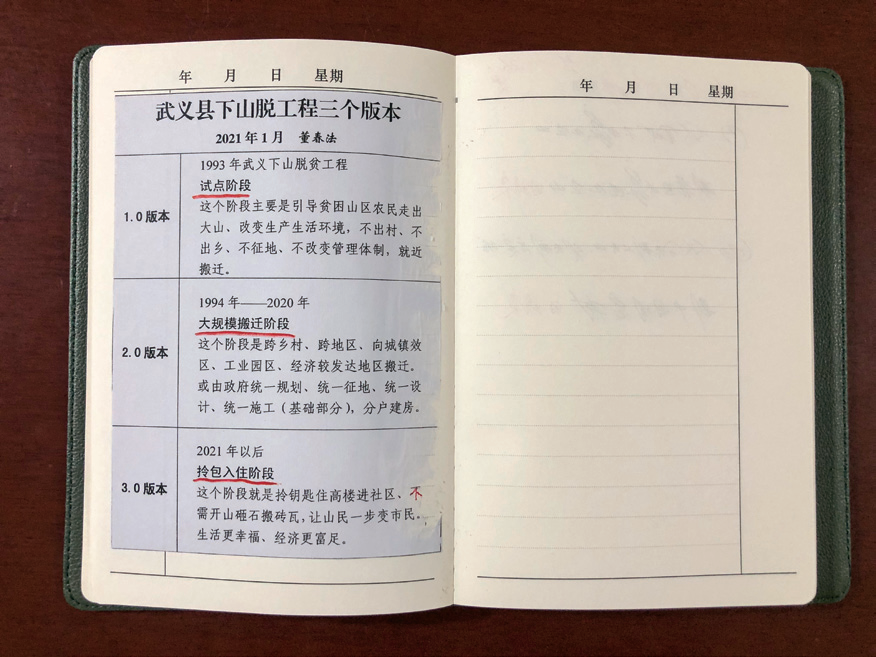 年 月 日 星期
武义县下山脱工程三个版本
2021年1月 董春法
1.0版本
1993年武义下山脱贫工程
试点阶段
这个阶段主要是引导贫困山区农民走出
大山、改变生产生活环境，不出村、不
出乡、不征地、不改变管理体制，就近
搬迁。
2.0版本
1994年——2020年
大规模搬迁阶段
这个阶段是跨乡村、跨地区、向城镇效
区、工业园区、经济较发达地区搬迁。
或由政府统一规划、统一征地、统一设
计、统一施工（基础部分），分户建房。
3.0版本
2021年以后
拎包入住阶段
这个阶段就是拎钥匙住高楼进社区、不
需开山砸石搬砖瓦，让山民一步变市民。
生活更幸福、经济更富足。
年 月 日 星期